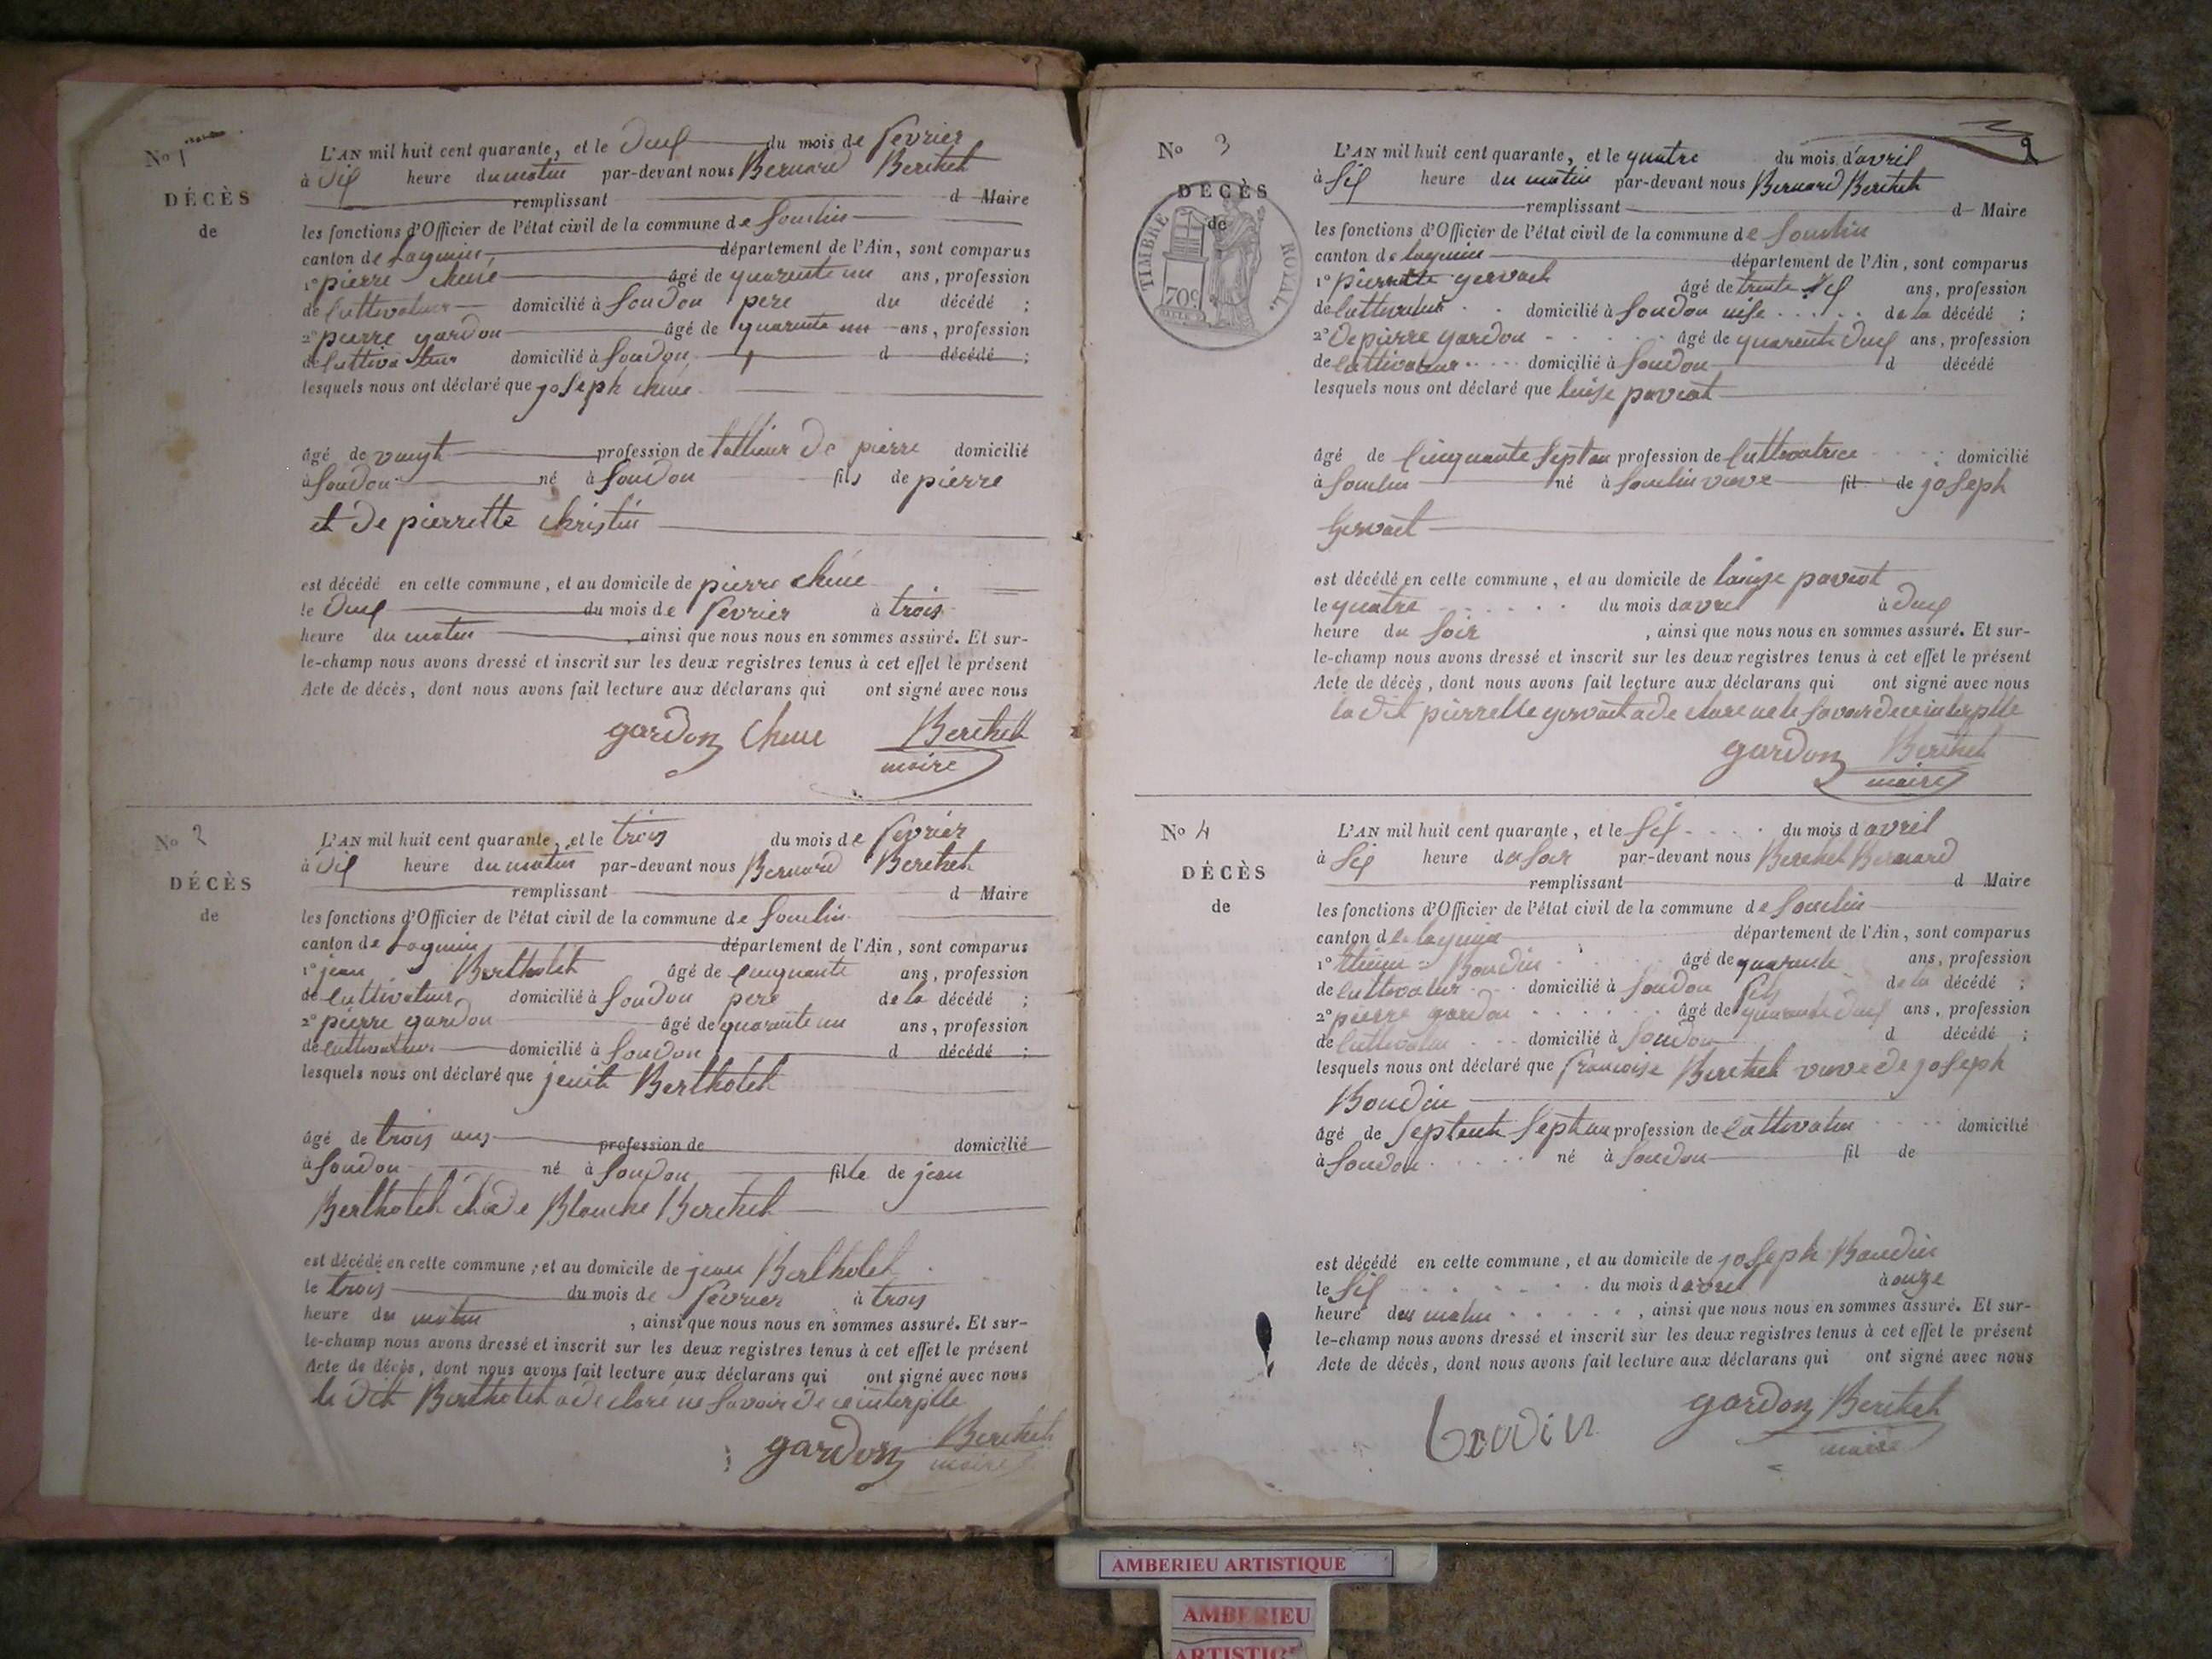 No 1
DÉCÈS
de
L'AN mil huit cent quarante, et le deux du mois de fevrier
à dix heure du matin par-devant nous Bernard Berthet
remplissant d Maire
les fonctions d'Officier de l'état civil de la commune de Souclin
canton de Lagnieu département de l'Ain, sont comparus
1° pierre chene âgé de quarente un ans, profession
de cultivateur domicilié à Soudon pere du décédé ;
2° pierre gardon âgé de quarente un ans, profession
de cultivateur domicilié à Soudon d décédé ;
lesquels nous ont déclaré que joseph chene
âgé de vingt profession de tallieur de pierre domicilié
à Soudon né à Soudon fils de pierre
et de pierrette christin
est décédé en cette commune, et au domicile de pierre chene
le deux du mois de fevrier à trois
heure du matin , ainsi que nous nous en sommes assuré. Et sur-
le-champ nous avons dressé et inscrit sur les deux registres tenus à cet effet le présent
Acte de décès, dont nous avons fait lecture aux déclarans qui ont signé avec nous
gardon Chene Berthet
maire
No 2
DÉCÈS
de
L'AN mil huit cent quarante, et le trois du mois de fevrier
à dix heure du matin par-devant nous Bernard Berthet
remplissant d Maire
les fonctions d'Officier de l'état civil de la commune de Souclin
canton de Lagnieu département de l'Ain, sont comparus
1° jean Bertholet âgé de cinquante ans, profession
de cultivateur domicilié à Soudon pere de la décédé ;
2° pierre gardon âgé de quarante un ans, profession
de cultivateur domicilié à Soudon d décédé ;
lesquels nous ont déclaré que Bertholet
âgé de trois ans profession de domicilié
à Soudon né à Soudon fille de jean
Bertholet et de Blanche Berthet
est décédé en cette commune ; et au domicile de jean Bertholet
le trois du mois de fevrier à trois
heure du matin , ainsi que nous nous en sommes assuré. Et sur-
le-champ nous avons dressé et inscrit sur les deux registres tenus à cet effet le présent
Acte de décès, dont nous avons fait lecture aux déclarans qui ont signé avec nous
le dit Bertholet a declaré ne savoir de ce interpelle
gardon Berthet
maire
9
No 3
DÉCÈS
de
TIMBRE ROYAL.
70c
L'AN mil huit cent quarante, et le quatre du mois d'avril
à six heure du matin par-devant nous Bernard Berthet
remplissant d Maire
les fonctions d'Officier de l'état civil de la commune de Souclin
canton de lagnieu département de l'Ain, sont comparus
1° pierrette gervait âgé de trente six ans, profession
de domicilié à Soudon de la décédé ;
2° De pierre gardon âgé de quarente deux ans, profession
de cultivateur domicilié à Soudon d décédé
lesquels nous ont déclaré que luise paviot
âgé de cinquante sept an profession de cultivatrice domicilié
à Souclin né à Souclin veve fil de joseph
gervait
est décédé en cette commune, et au domicile de louise paviot
le quatre du mois d avril à deux
heure du soir , ainsi que nous nous en sommes assuré. Et sur-
le-champ nous avons dressé et inscrit sur les deux registres tenus à cet effet le présent
Acte de décès, dont nous avons fait lecture aux déclarans qui ont signé avec nous
la dit pierrette gervait a de clare ne le savoir de ce interpelle
gardon Berthet
maire
No 4
DÉCÈS
de
L'AN mil huit cent quarante, et le six du mois d avril
à six heure du soir par-devant nous Berthet Bernard
remplissant d Maire
les fonctions d'Officier de l'état civil de la commune de Souclin
canton de lagnieu département de l'Ain, sont comparus
1° Boudin âgé de quarante ans, profession
de cultivateur domicilié à Soudon fils de la décédé ;
2° pierre gardon âgé de quarante deux ans, profession
de cultivateur domicilié à Soudon d décédé ;
lesquels nous ont déclaré que francoise Berthet veve de joseph
Boudin
âgé de septente sept an profession de cultivateur domicilié
à Soudon né à Soudon fil de
est décédé en cette commune, et au domicile de joseph Boudin
le six du mois d avril à onze
heure du matin , ainsi que nous nous en sommes assuré. Et sur-
le-champ nous avons dressé et inscrit sur les deux registres tenus à cet effet le présent
Acte de décès, dont nous avons fait lecture aux déclarans qui ont signé avec nous
boudin gardon Berthet
maire
AMBERIEU ARTISTIQUE
AMBERIEU
ARTISTIQUE